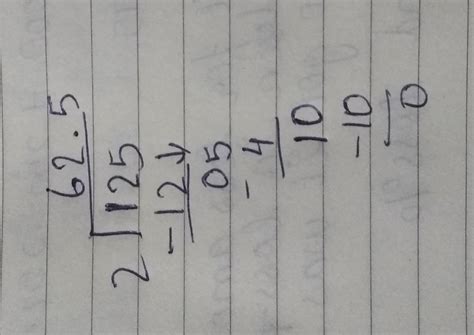 62.5
2⟌125
-12↓
05
- 4
10
-10
0